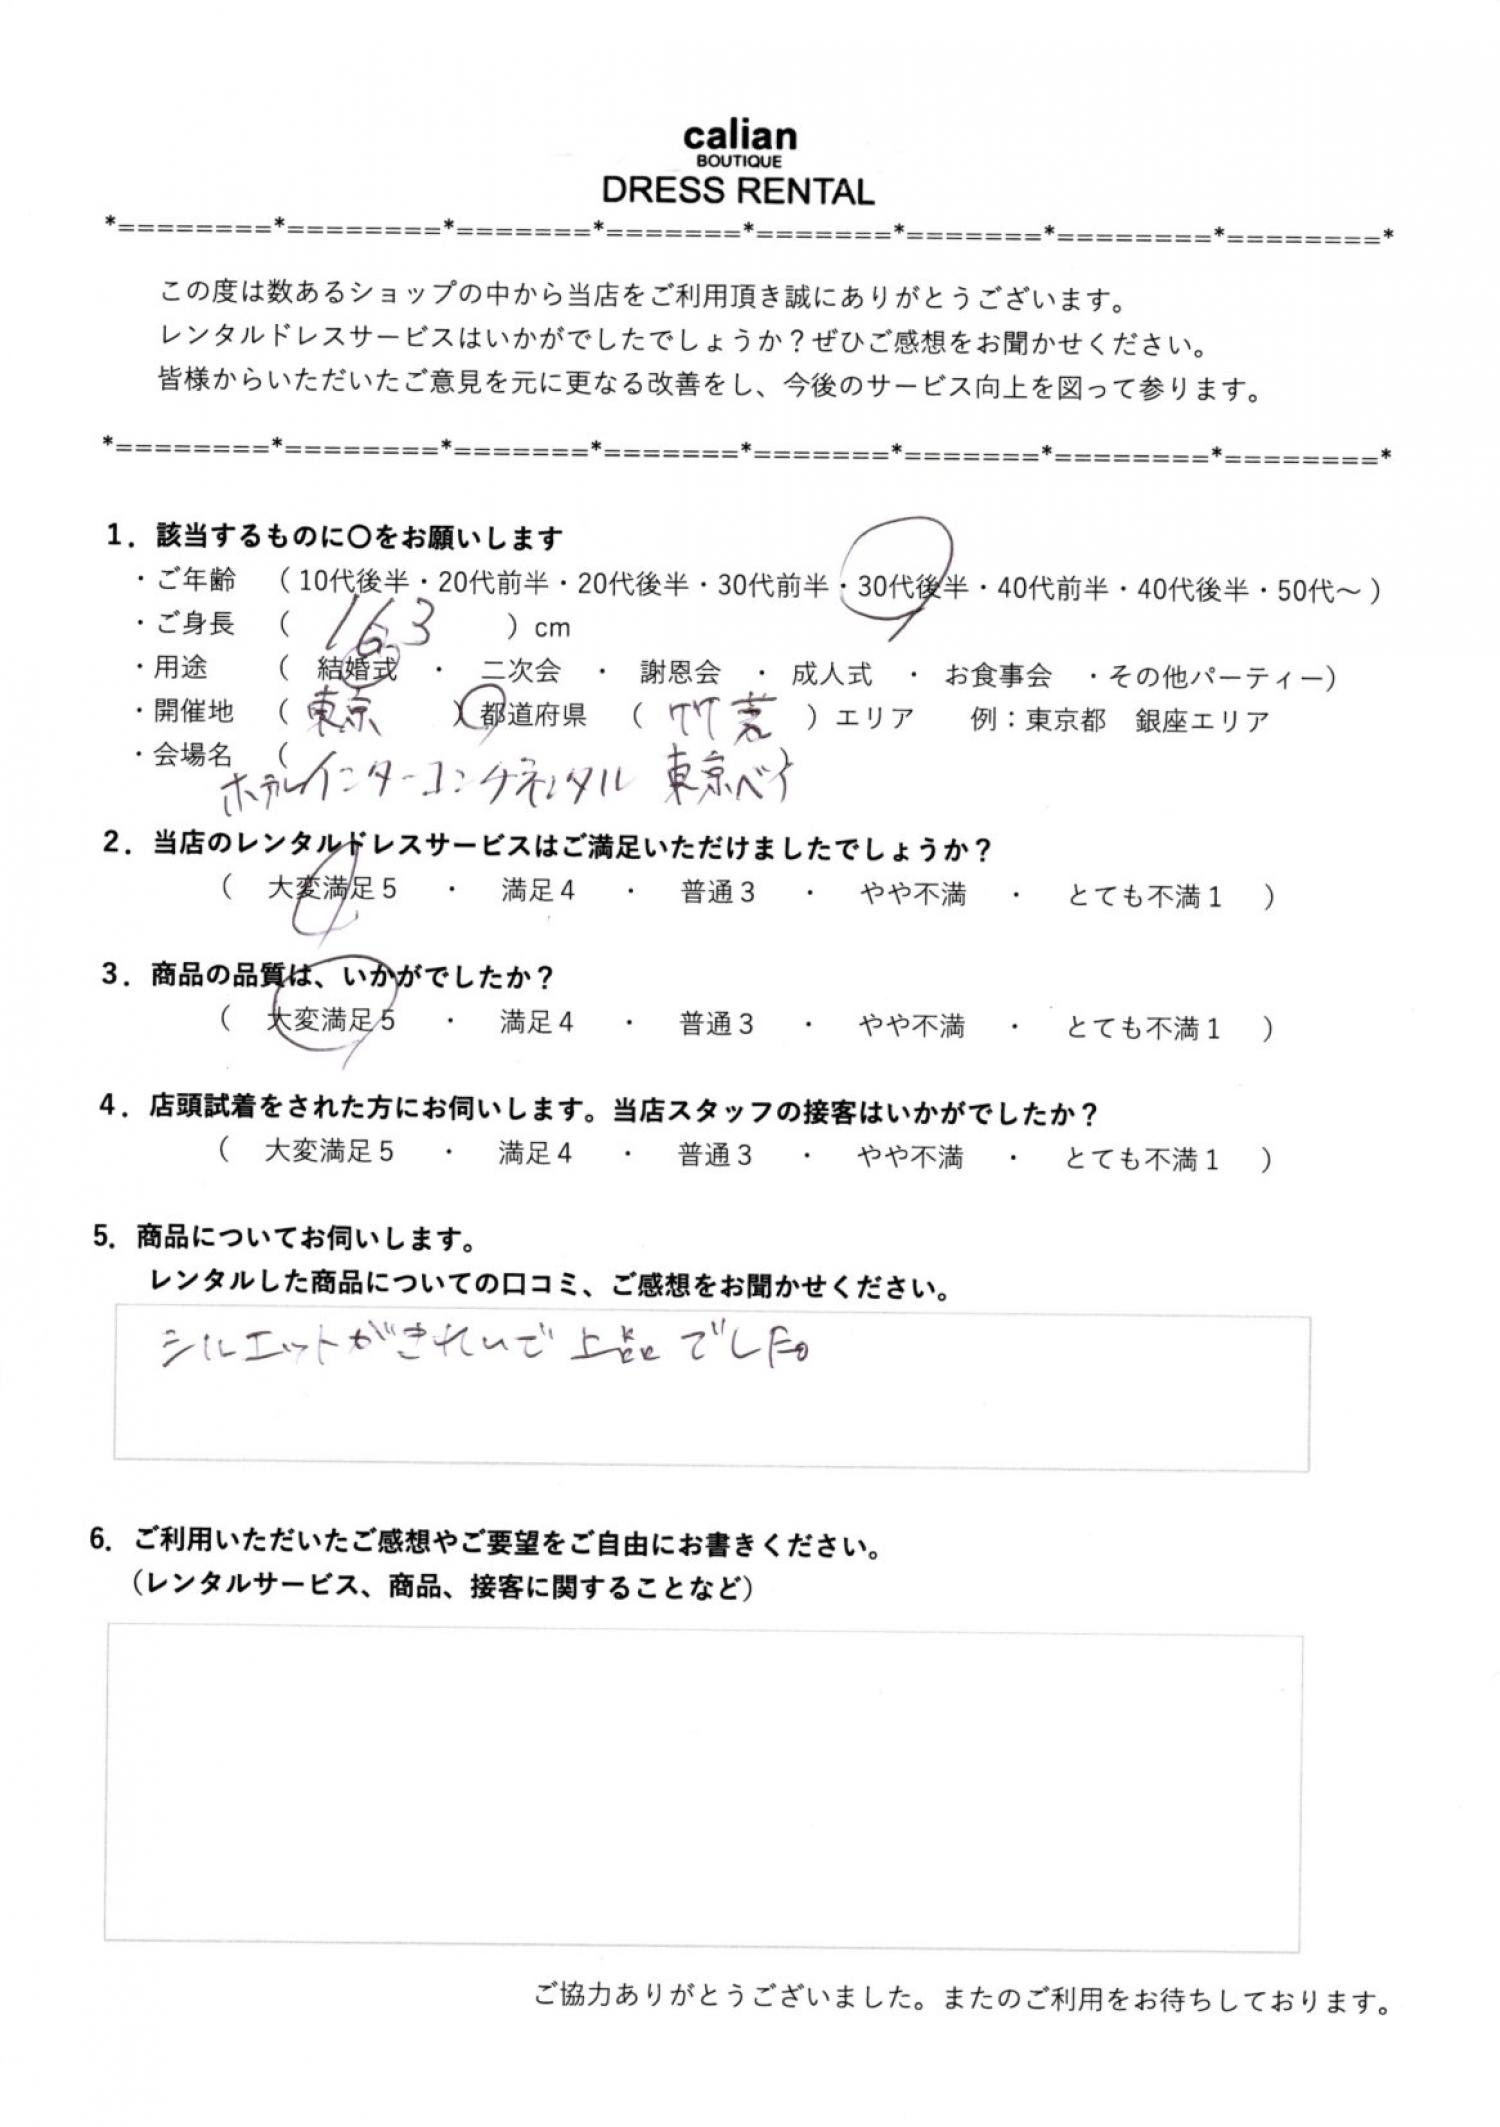 calian
BOUTIQUE
DRESS RENTAL
*========*========*=======*=======*=======*=======*========*========*
この度は数あるショップの中から当店をご利用頂き誠にありがとうございます。
レンタルドレスサービスはいかがでしたでしょうか？ぜひご感想をお聞かせください。
皆様からいただいたご意見を元に更なる改善をし、今後のサービス向上を図って参ります。
*========*========*=======*=======*=======*=======*========*========*
1．該当するものに〇をお願いします
・ご年齢 （ 10代後半・20代前半・20代後半・30代前半・30代後半・40代前半・40代後半・50代～ ）
・ご身長 （ 163 ）cm
・用途 （ 結婚式 ・ 二次会 ・ 謝恩会 ・ 成人式 ・ お食事会 ・その他パーティー）
・開催地 （ 東京 ）都道府県 （ 竹芝 ）エリア 例：東京都 銀座エリア
・会場名 （
ホテルインターコンチネンタル 東京ベイ
2．当店のレンタルドレスサービスはご満足いただけましたでしょうか？
（ 大変満足５ ・ 満足４ ・ 普通３ ・ やや不満 ・ とても不満１ ）
3．商品の品質は、いかがでしたか？
（ 大変満足５ ・ 満足４ ・ 普通３ ・ やや不満 ・ とても不満１ ）
4．店頭試着をされた方にお伺いします。当店スタッフの接客はいかがでしたか？
（ 大変満足５ ・ 満足４ ・ 普通３ ・ やや不満 ・ とても不満１ ）
5．商品についてお伺いします。
レンタルした商品についての口コミ、ご感想をお聞かせください。
シルエットがきれいで上品でした。
6．ご利用いただいたご感想やご要望をご自由にお書きください。
（レンタルサービス、商品、接客に関することなど）
ご協力ありがとうございました。またのご利用をお待ちしております。